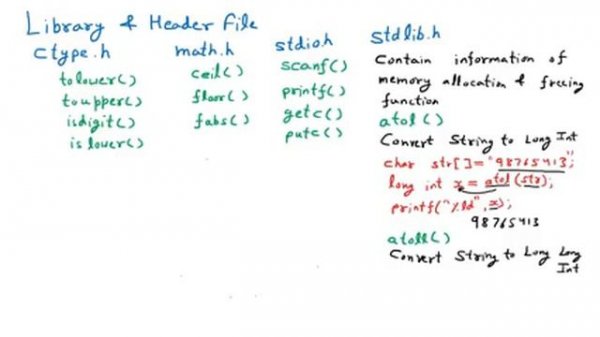 Library & Header File
ctype.h
tolower()
toupper()
isdigit()
islower()
math.h
ceil()
floor()
fabs()
stdio.h
scanf()
printf()
getc()
putc()
stdlib.h
Contain information of
memory allocation & freeing
function
atol()
Convert String to Long Int
char str[]="98765413";
long int x=atol(str);
printf("%ld",x);
98765413
atoll()
Convert String to Long Long
Int